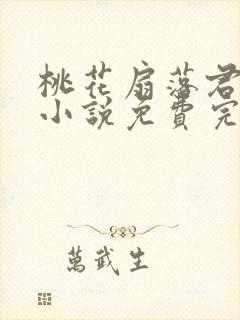 桃花扇落君
小說免費完
萬武生